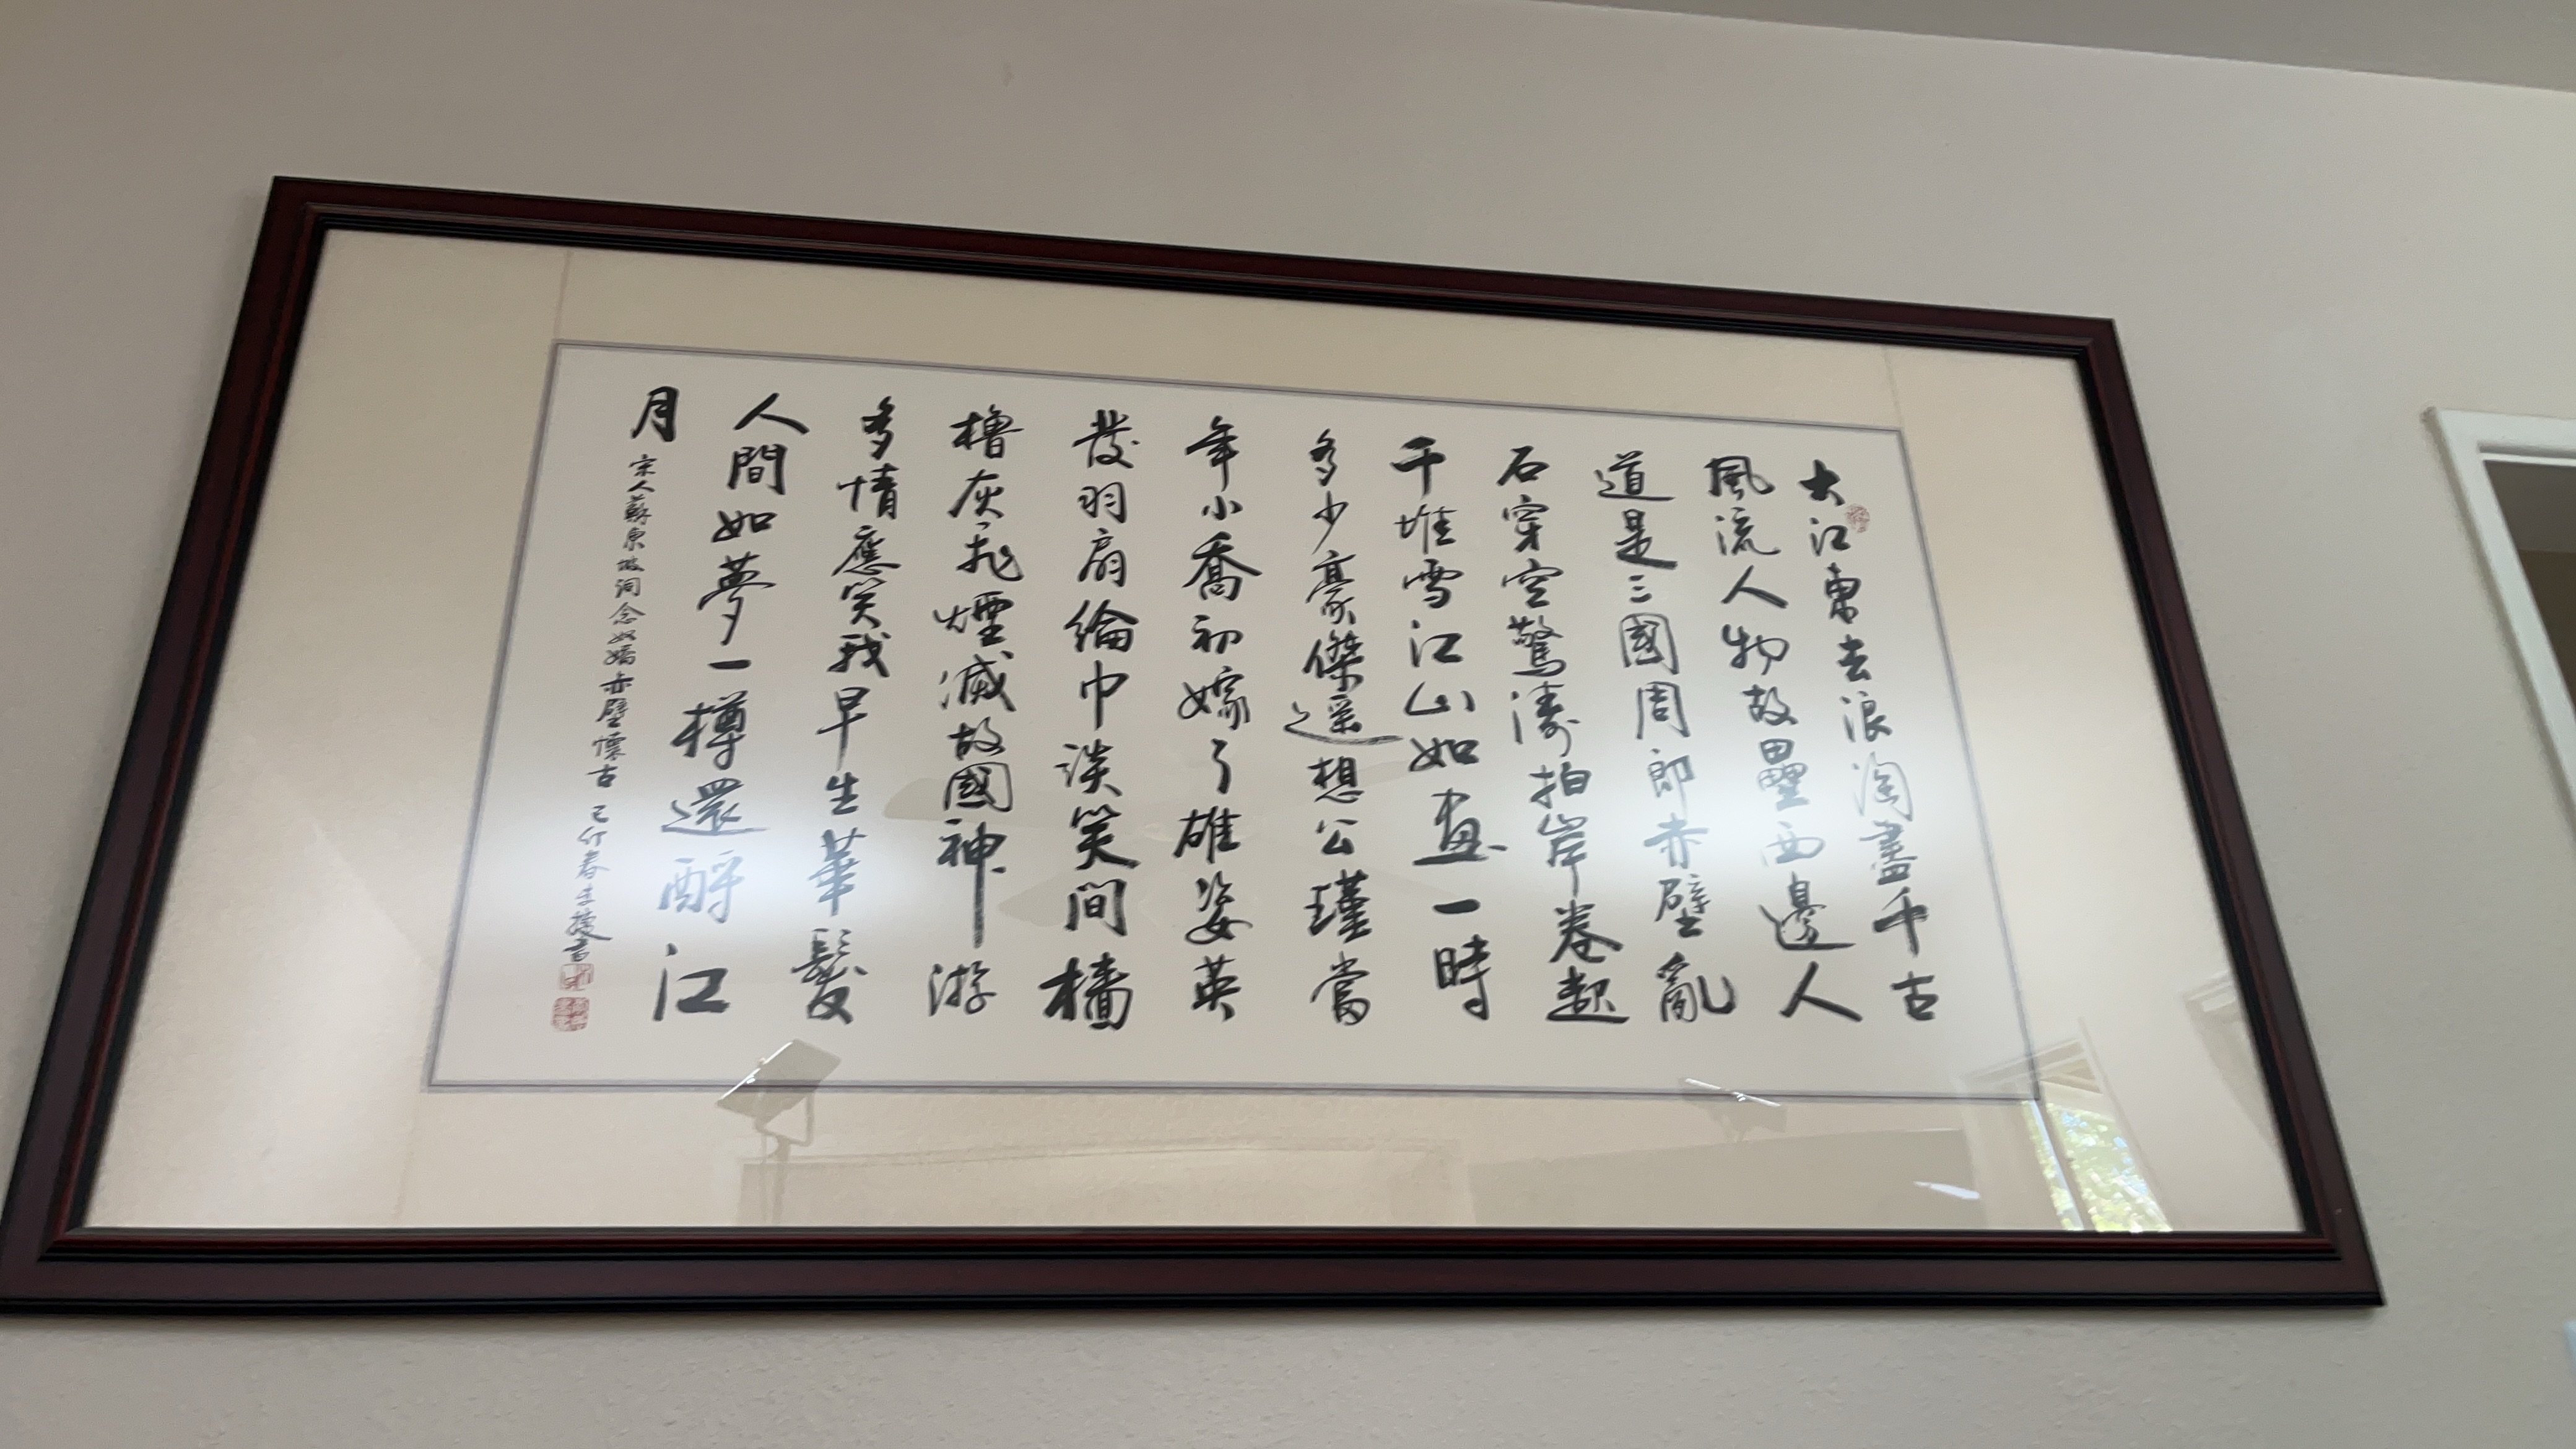 大江東去浪淘盡千古
風流人物故壘西邊人
道是三國周郎赤壁亂
石穿空驚濤拍岸卷起
千堆雪江山如畫一時
多少豪傑遥想公瑾當
年小喬初嫁了雄姿英
發羽扇綸巾談笑間檣
櫓灰飛煙滅故國神游
多情應笑我早生華髮
人間如夢一樽還酹江
月
宋人蘇東坡詞念奴嬌赤壁懷古 己卯春 書